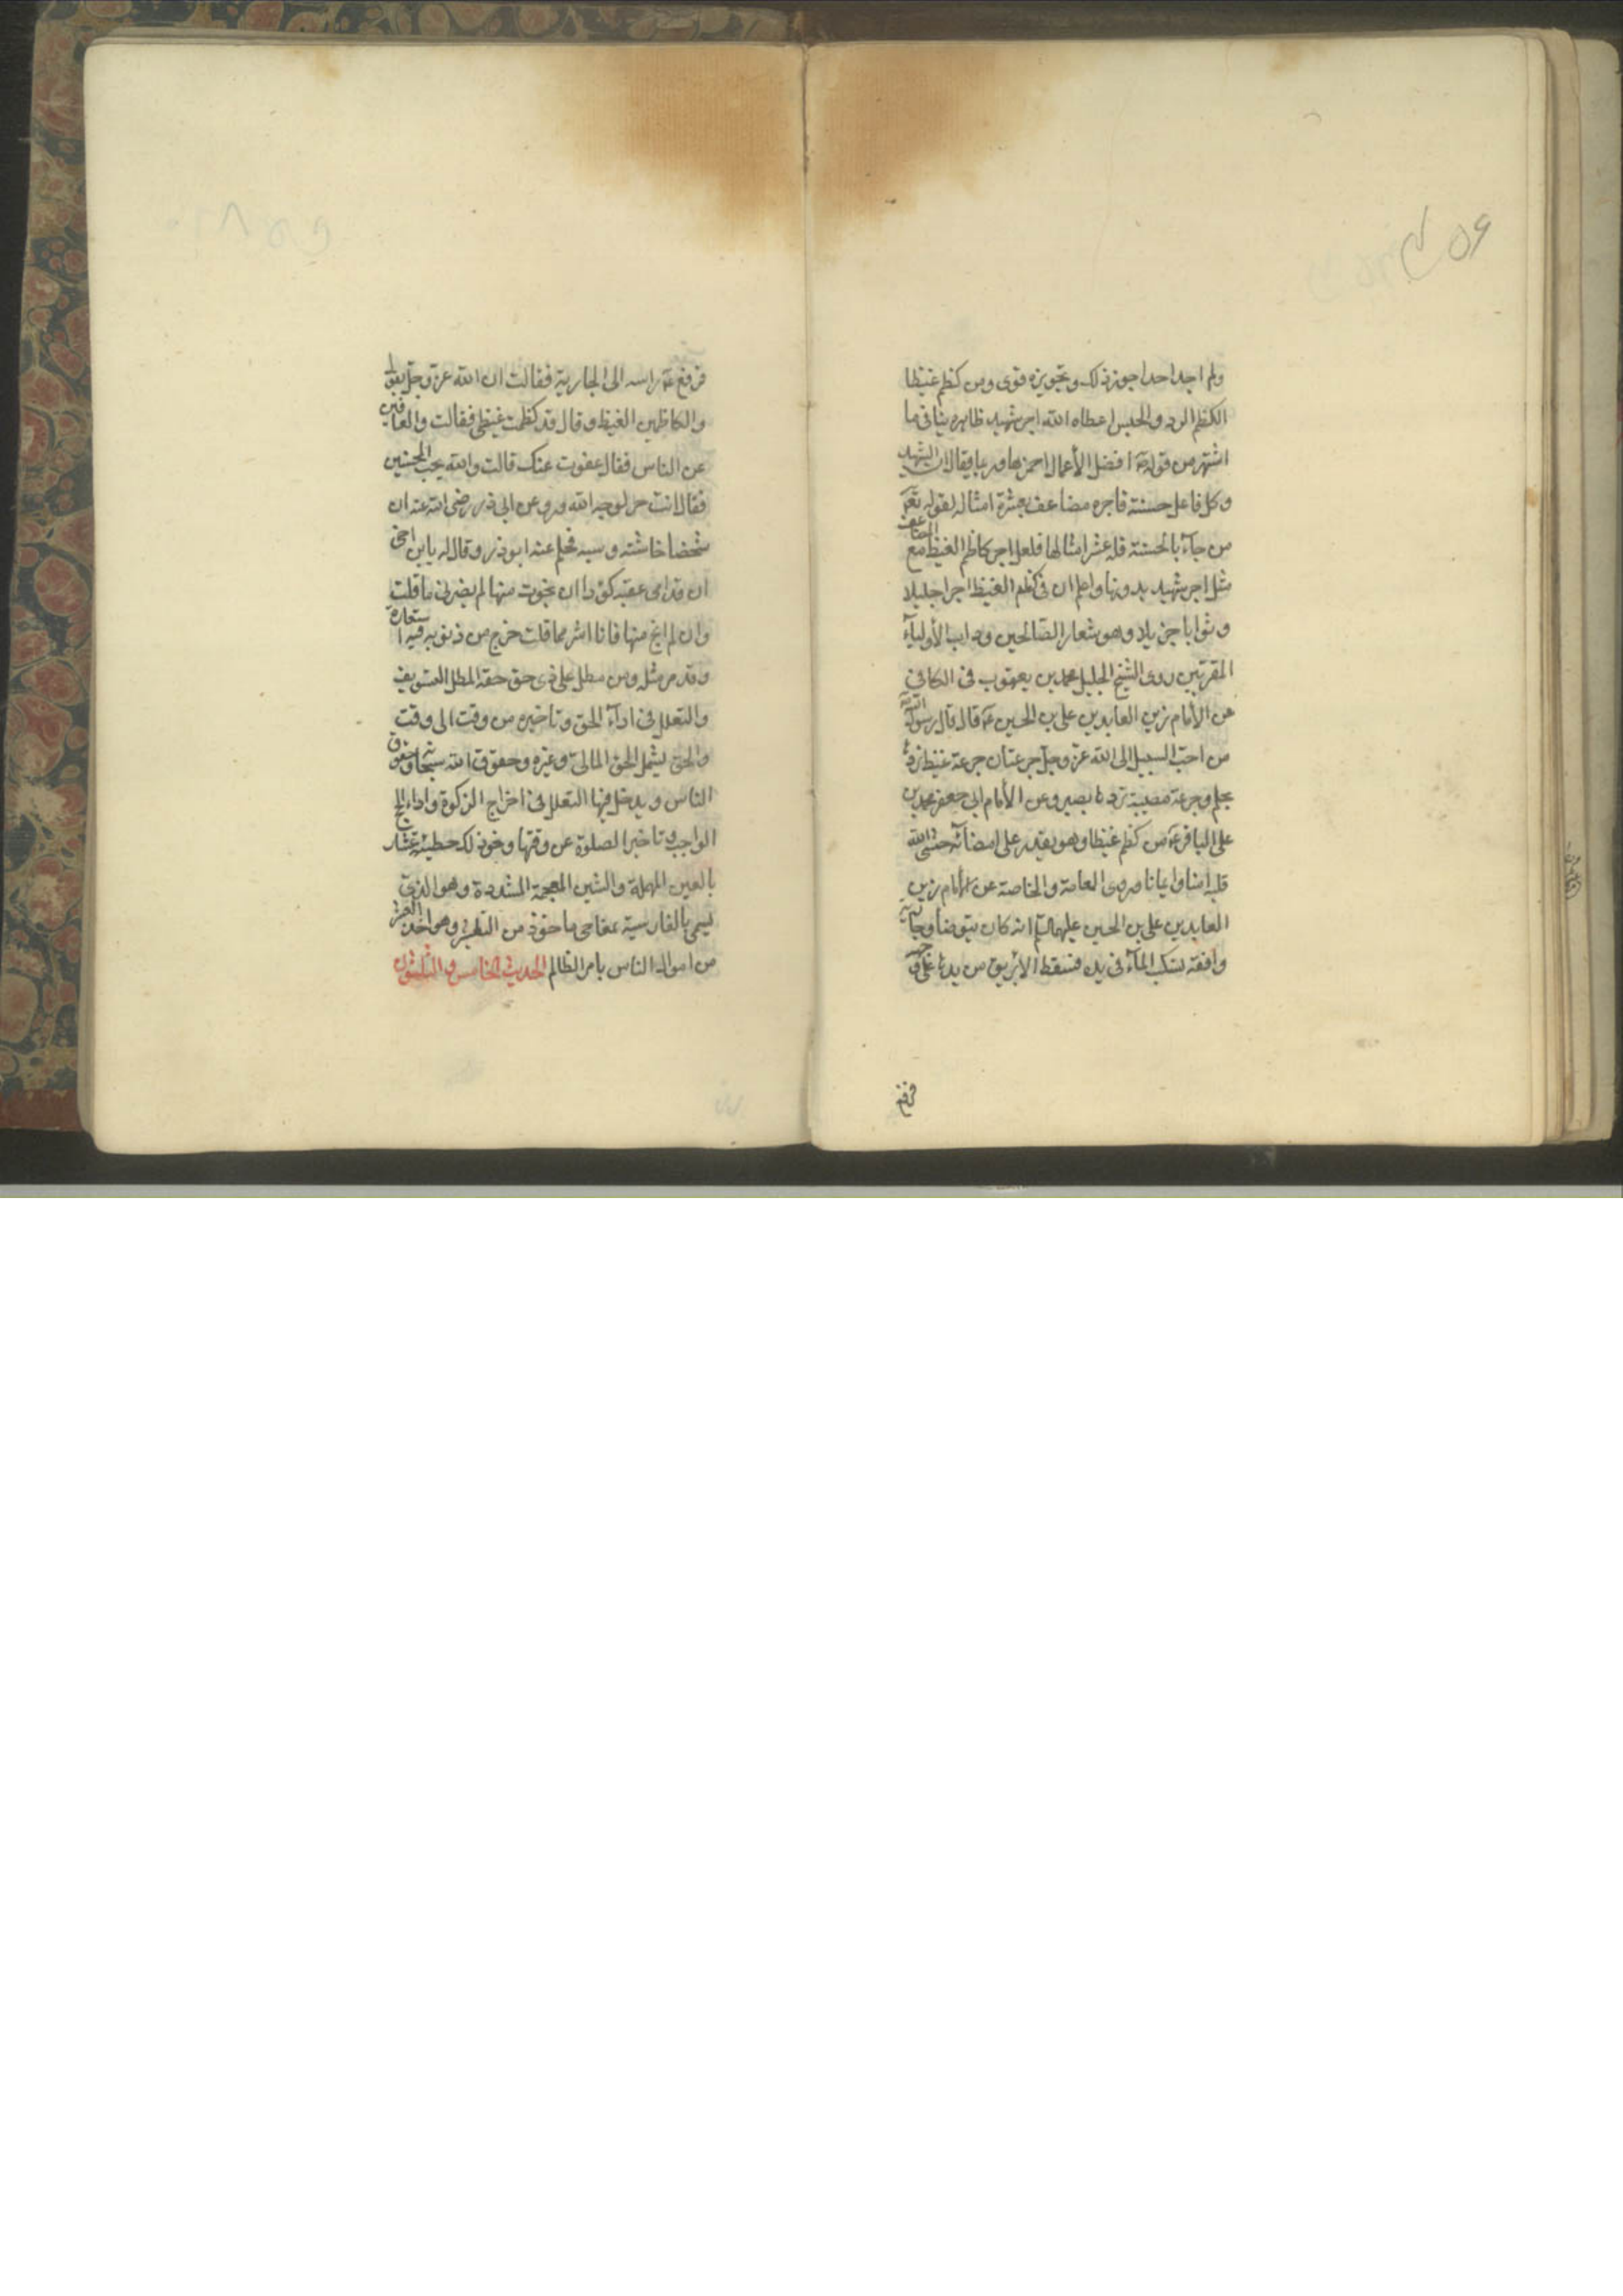 ولم اجد احدا جوز ذلك وتجويزه قوى ومن كظم غيظا
الكظم الرد والحبس اعطاه الله اجر شهيد ظاهره ينافى ما
اشتهر من قوله ع افضل الأعمال احمزها وربما يقال ان الشهيد
وكل فاعل حسنة فاجره مضاعف بعشرة امثاله لقوله تع
من جآء بالحسنة فله عشر امثالها فلعل اجر كاظم الغيظ مع المضاعف
مثل اجر شهيد بدونها واعلم ان فى كظم الغيظ اجرا جليلا
وثوابا جزيلا وهو شعار الصالحين وداب الأولياء
المقربين روى الشيخ الجليل محمد بن يعقوب فى الكافى
عن الأمام زين العابدين على بن الحسين ع قال قال رسول الله
من احب السبيل الى الله عز وجل جرعتان جرعة غيظ تردها
بحلم وجرعة مصيبة تردها بصبر وعن الأمام ابى جعفر محمد بن
على الباقر ع من كظم غيظا وهو يقدر على امضائه حشى الله
قلبه امنا وايمانا وروى العامة والخاصة عن الأمام زين
العابدين على بن الحسين عليهما السلم انه كان يتوضأ وجارية
واقفة تسكب المآء فى يده فسقط الأبريق من يدها على وجهه
فرفع
فرفع ع راسه الى الجارية فقالت ان الله عز وجل يقول
والكاظمين الغيظ وقال قد كظمت غيظى فقالت والعافين
عن الناس فقال عفوت عنك قالت والله يحب المحسنين
فقال انت حر لوجه الله وروى عن ابى ذر رضى الله عنه ان
شخصا خاشنه وسبه فحلم عنه ابو ذر وقال له يابن اخى
ان قدامى عقبه كؤدا ان نجوت منها لم يضرنى ما قلت
وان لم انج منها فانا اشر مما قلت خرج من ذنوبه فيه استعارة
وقد مر مثله ومن مطل على ذى حق حقه المطل التسويف
والتعلل فى ادآء الحق وتاخيره من وقت الى وقت
والحق يشمل الحق المالى وغيره وحقوق الله سبحانه وحقوق
الناس ويدخل فيها التعلل فى اخراج الزكوة واداء الحج
الواجب وتاخير الصلوة عن وقتها ونحو ذلك خطيئة عشار
بالعين المهملة والشين المعجمة المشددة وهو الذى
يسمى بالفارسية تمغاجى ماخوذ من التعشير وهو اخذ العشر
من اموال الناس بامر الظالم الحديث الخامس والثلثون